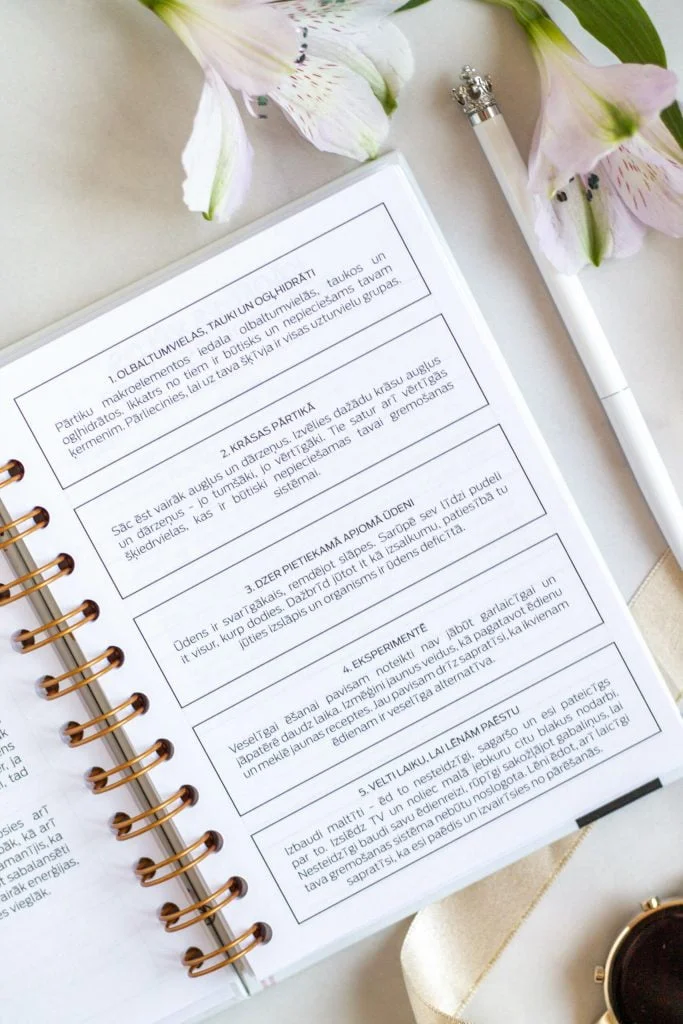 r, ja
ēns
, tad
osies arī
pāk, kā arī
amanījis, ka
t sabalansēti
vairāk enerģijas,
es vieglāk.
1. OLBALTUMVIELAS, TAUKI UN OGĻHIDRĀTI
Pārtiku makroelementos iedala olbaltumvielās, taukos un
ogļhidrātos. Ikkatrs no tiem ir būtisks un nepieciešams tavam
ķermenim. Pārliecinies, lai uz tava šķīvja ir visas uzturvielu grupas.
2. KRĀSAS PĀRTIKĀ
Sāc ēst vairāk augļus un dārzeņus. Izvēlies dažādu krāsu augļus
un dārzeņus - jo tumšāki, jo vērtīgāki. Tie satur arī vērtīgās
šķiedrvielas, kas ir būtiski nepieciešamas tavai gremošanas
sistēmai.
3. DZER PIETIEKAMĀ APJOMĀ ŪDENI
Ūdens ir svarīgākais, remdējot slāpes. Sarūpē sev līdzi pudeli
it visur, kurp dodies. Dažbrīd jūtot it kā izsalkumu, patiesībā tu
jūties izslāpis un organisms ir ūdens deficītā.
4. EKSPERIMENTĒ
Veselīgai ēšanai pavisam noteikti nav jābūt garlaicīgai un
jāpatērē daudz laika. Izmēģini jaunus veidus, kā pagatavot ēdienu
un meklē jaunas receptes. Jau pavisam drīz sapratīsi, ka ikvienam
ēdienam ir veselīga alternatīva.
5. VELTI LAIKU, LAI LĒNĀM PAĒSTU
Izbaudi maltīti - ēd to nesteidzīgi, sagaršo un esi pateicīgs
par to. Izslēdz TV un noliec malā jebkuru citu blakus nodarbi.
Nesteidzīgi baudi savu ēdienreizi, rūpīgi sakošļājot gabaliņus, lai
tava gremošanas sistēma nebūtu noslogota. Lēni ēdot, arī laicīgi
sapratīsi, ka esi paēdis un izvairīsies no pārēšanās.